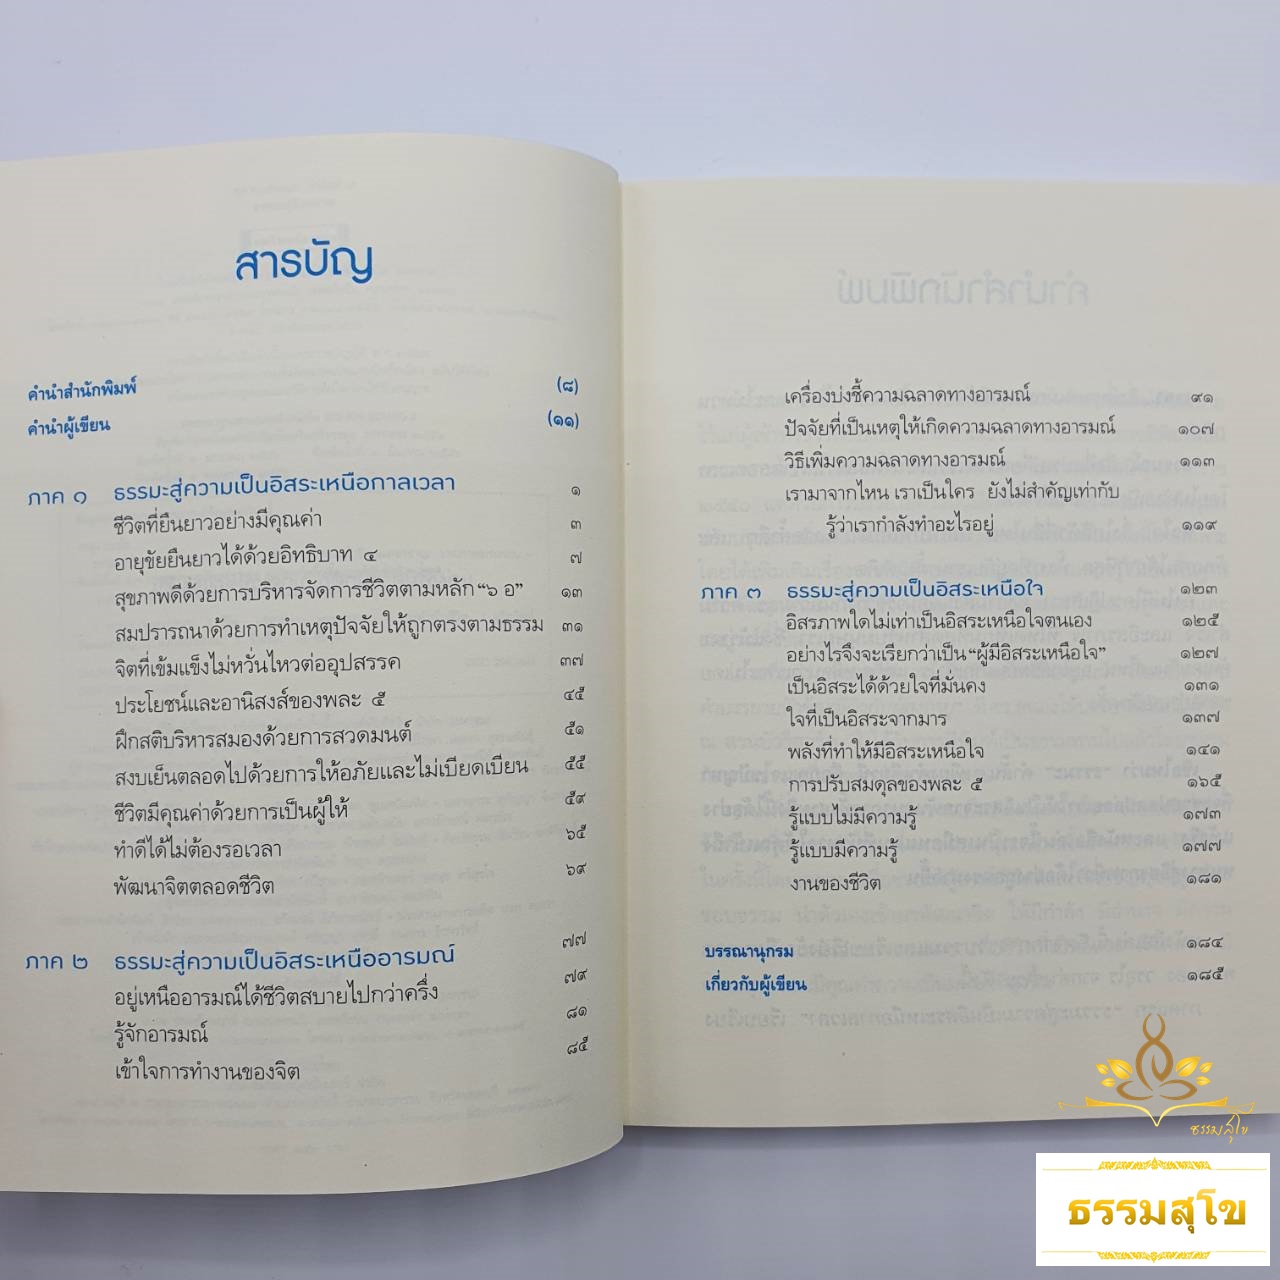 สารบัญ
คำนำสำนักพิมพ์ (๘)
คำนำผู้เขียน (๑๑)
ภาค ๑ ธรรมะสู่ความเป็นอิสระเหนือกาลเวลา ๑
ชีวิตที่ยืนยาวอย่างมีคุณค่า ๓
อายุขัยยืนยาวได้ด้วยอิทธิบาท ๔ ๗
สุขภาพดีด้วยการบริหารจัดการชีวิตตามหลัก “๖ อ” ๑๓
สมปรารถนาด้วยการทำเหตุปัจจัยให้ถูกตรงตามธรรม ๓๑
จิตที่เข้มแข็งไม่หวั่นไหวต่ออุปสรรค ๓๗
ประโยชน์และอานิสงส์ของพละ ๕ ๔๕
ฝึกสติบริหารสมองด้วยการสวดมนต์ ๕๑
สงบเย็นตลอดไปด้วยการให้อภัยและไม่เบียดเบียน ๕๕
ชีวิตมีคุณค่าด้วยการเป็นผู้ให้ ๕๙
ทำดีได้ไม่ต้องรอเวลา ๖๕
พัฒนาจิตตลอดชีวิต ๖๙
ภาค ๒ ธรรมะสู่ความเป็นอิสระเหนืออารมณ์ ๗๗
อยู่เหนืออารมณ์ได้ชีวิตสบายไปกว่าครึ่ง ๗๙
รู้จักอารมณ์ ๘๑
เข้าใจการทำงานของจิต ๘๕
เครื่องบ่งชี้ความฉลาดทางอารมณ์ ๙๑
ปัจจัยที่เป็นเหตุให้เกิดความฉลาดทางอารมณ์ ๑๐๗
วิธีเพิ่มความฉลาดทางอารมณ์ ๑๑๓
เรามาจากไหน เราเป็นใคร ยังไม่สำคัญเท่ากับ
รู้ว่าเรากำลังทำอะไรอยู่ ๑๑๙
ภาค ๓ ธรรมะสู่ความเป็นอิสระเหนือใจ ๑๒๓
อิสรภาพใดไม่เท่าเป็นอิสระเหนือใจตนเอง ๑๒๕
อย่างไรจึงจะเรียกว่าเป็น “ผู้มีอิสระเหนือใจ” ๑๒๗
เป็นอิสระได้ด้วยใจที่มั่นคง ๑๓๑
ใจที่เป็นอิสระจากมาร ๑๓๗
พลังที่ทำให้มีอิสระเหนือใจ ๑๔๑
การปรับสมดุลของพละ ๕ ๑๖๕
รู้แบบไม่มีความรู้ ๑๗๓
รู้แบบมีความรู้ ๑๗๗
งานของชีวิต ๑๘๑
บรรณานุกรม ๑๘๔
เกี่ยวกับผู้เขียน ๑๘๕
ธรรมสุโข
ธรรมสุโข